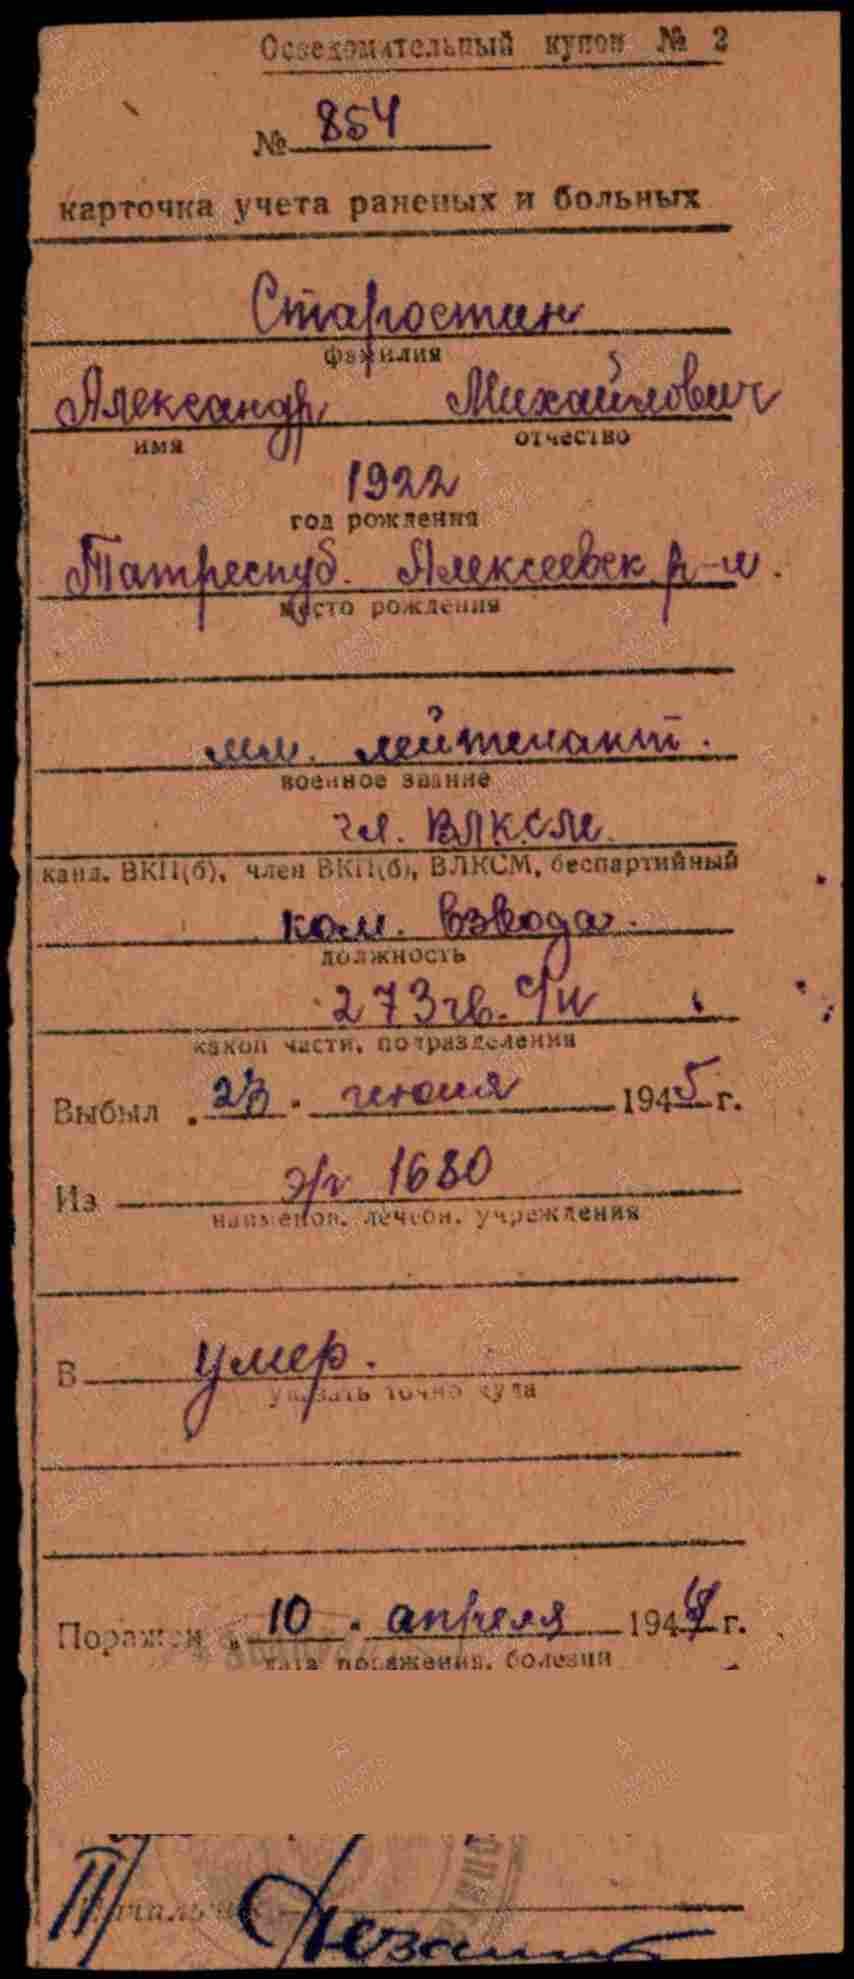 Осведомительный купон № 2
№ 854
карточка учета раненых и больных
Старостин
фамилия
Александр Михайлович
имя отчество
1922
год рождения
Татреспуб. Алексеевск р-н.
место рождения
мл. лейтенант.
военное звание
чл. ВЛКСМ.
канд. ВКП(б), член ВКП(б), ВЛКСМ, беспартийный
ком. взвода.
должность
273 гв. с/п
какой части, подразделения
Выбыл "23" июня 1945 г.
Из э/г 1680
наименов. лечебн. учреждения
В умер.
указать точно куда
Поражен "10" апреля 194 г.
дата поражения, болезни
Начальник